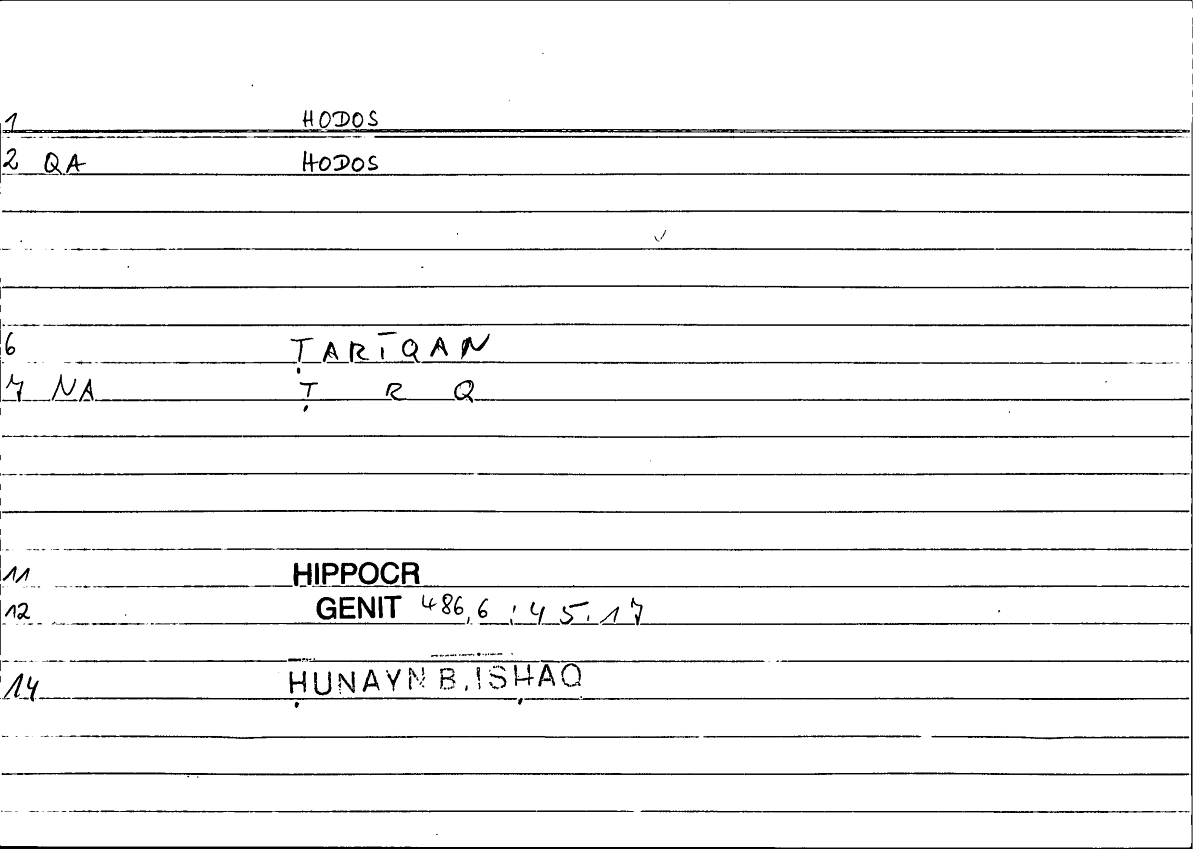 1 HODOS
2 QA HODOS
6 ṬARĪQAN
7 NA Ṭ R Q
11 HIPPOCR
12 GENIT 486,6 : 45.17
14 ḤUNAYN B. ISḤAQ